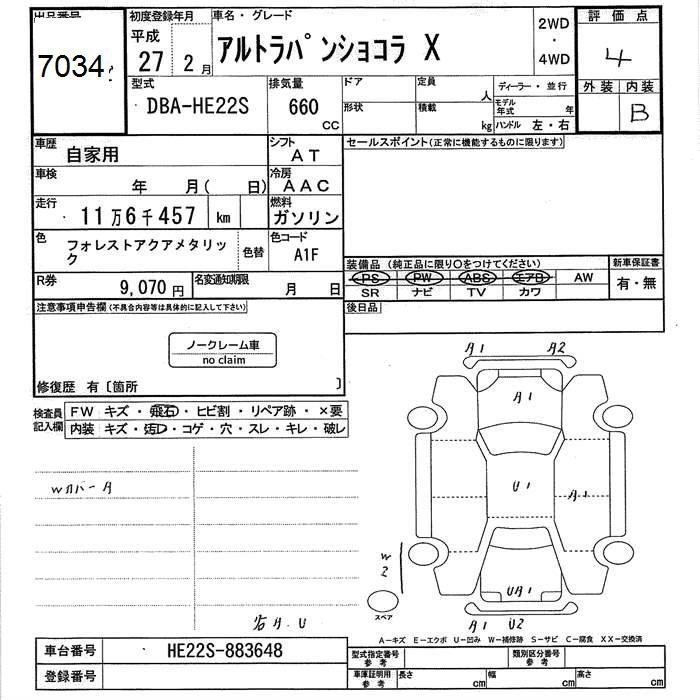 出品番号 初度登録年月 車名・グレード 2WD・4WD 評価点
7034
平成 27 2月 アルトラパンショコラ X 4
型式 排気量 ドア 定員 人 ディーラー・並行 外装 内装
DBA-HE22S 660 CC 形状 積載 kg モデル年式 年 B
ハンドル 左・右
車歴 自家用 シフト AT セールスポイント(正常に機能するものに限ります)
車検 年 月( 日) 冷房 AAC
走行 11万6千457 km 燃料 ガソリン
色 フォレストアクアメタリック 色替 色コード A1F
装備品 (純正品に限り○をつけてください) 新車保証書
PS PW ABS エアB AW 有・無
SR ナビ TV カワ
R券 9,070円 名変通知期限 月 日
注意事項申告欄(不具合内容等は具体的に記入して下さい) 後日品
ノークレーム車
no claim
修復歴 有〔箇所 〕
検査員記入欄 FW キズ・飛石・ヒビ割・リペア跡・×要
内装 キズ・汚レ・コゲ・穴・スレ・キレ・破レ
A1 A2
A1
Wカバー A
U1 A1
W2
UA1
スペア
A1 U2
A-キズ E-エクボ U-凹み W-補修跡 S-サビ C-腐食 XX-交換済
車台番号 HE22S-883648 型式指定番号 参考 類別区分番号 参考
登録番号 車庫証明用 参考 長さ cm 幅 cm 高さ cm